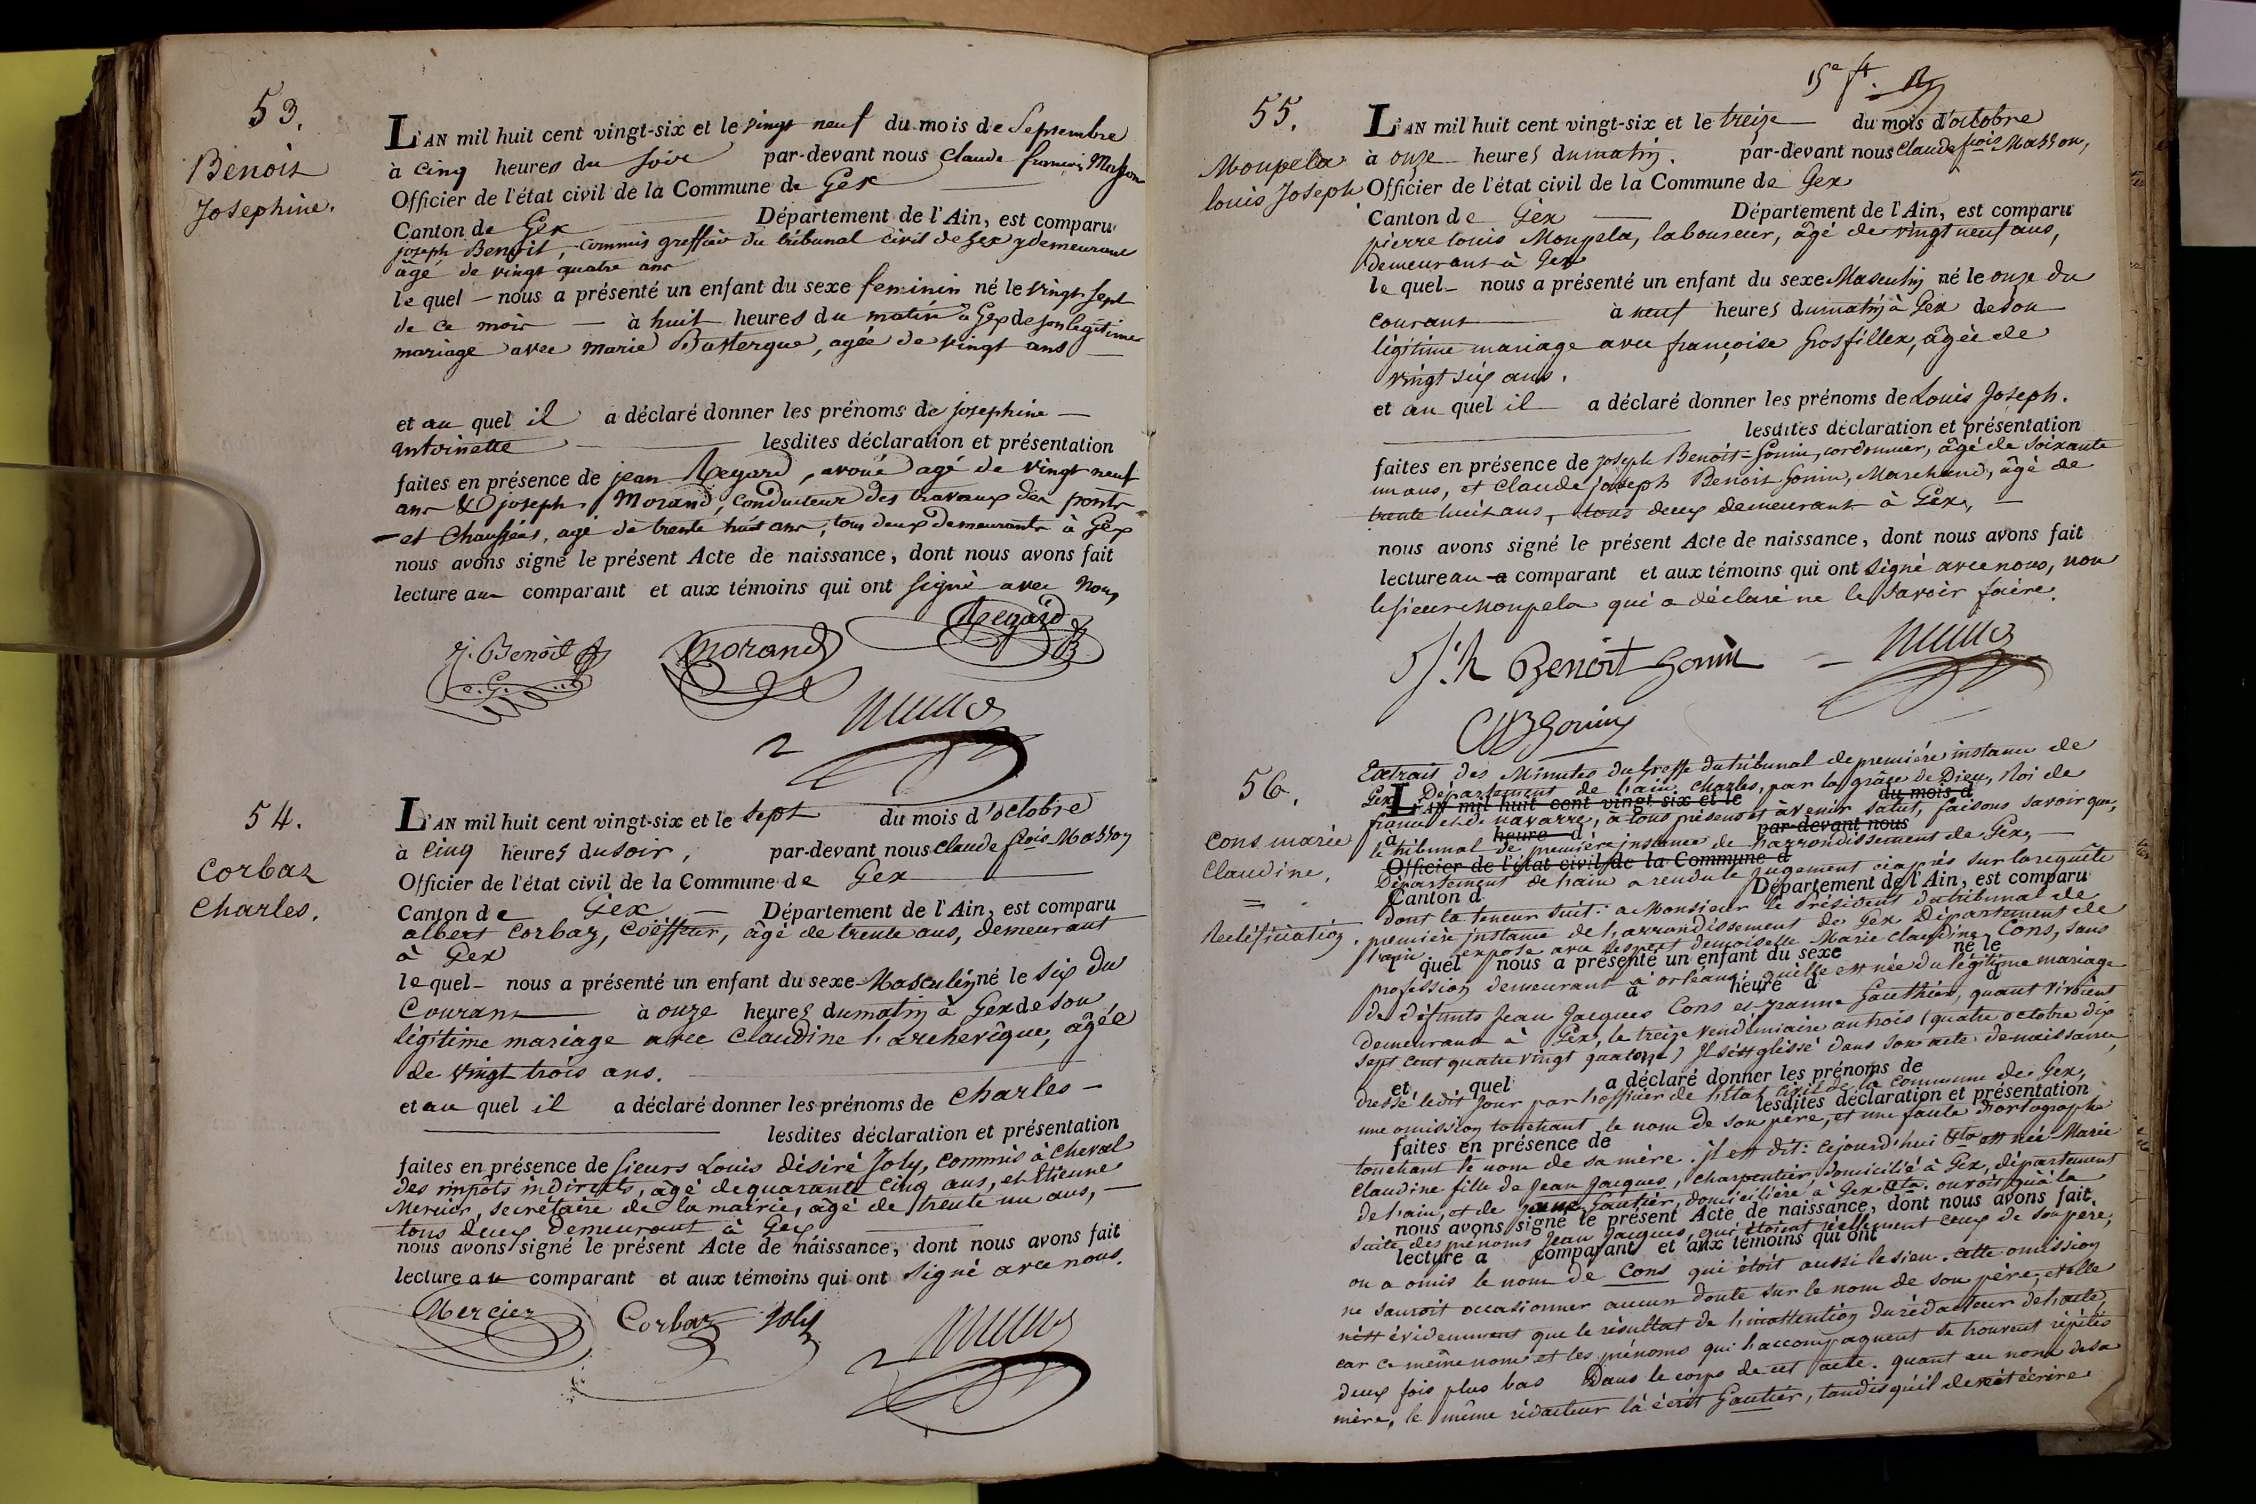 53.
Benoit
Josephine.
L'AN mil huit cent vingt-six et le vingt neuf du mois de Septembre
à cinq heures du soir par-devant nous Claude françois Masson
Officier de l'état civil de la Commune de Gex
Canton de Gex Département de l'Ain, est comparu
joseph Benoit, commis greffier du tribunal civil de Gex y demeurant
âgé de vingt quatre ans
le quel nous a présenté un enfant du sexe feminin né le vingt sept
de ce mois à huit heures du matin à Gex de son légitime
mariage avec marie Bastergue, agée de vingt ans
et au quel il a déclaré donner les prénoms de josephine
antoinette lesdites déclaration et présentation
faites en présence de jean Regard, avoué agé de vingt neuf
ans & joseph Morand, conducteur des travaux des ponts
et Chaussées, agé de trente huit ans, tous deux demeurants à Gex
nous avons signé le présent Acte de naissance, dont nous avons fait
lecture au comparant et aux témoins qui ont signé avec nous
Regard
J. Benoit morand
54.
Corbaz
Charles.
L'AN mil huit cent vingt-six et le sept du mois d'octobre
à cinq heures du soir, par-devant nous Claude fçois Masson
Officier de l'état civil de la Commune de Gex
Canton de Gex Département de l'Ain, est comparu
albert Corbaz, Coëffeur, âgé de trente ans, demeurant
à Gex
le quel nous a présenté un enfant du sexe Masculin né le six du
Courant à onze heures du matin à Gex de son
légitime mariage avec Claudine l'archevêque, âgée
de vingt trois ans.
et au quel il a déclaré donner les prénoms de Charles
lesdites déclaration et présentation
faites en présence de sieurs Louis désiré Joly, commis à cheval
des impôts indirects, âgé de quarante cinq ans, et Etienne
Mercier, secrétaire de la mairie, âgé de trente un ans,
tous deux demeurant à Gex
nous avons signé le présent Acte de naissance, dont nous avons fait
lecture au comparant et aux témoins qui ont signé avec nous.
Mercier Corbaz Joly
15e ft.
55.
Moupela
louis Joseph
L'AN mil huit cent vingt-six et le treize du mois d'octobre
à onze heures du matin. par-devant nous Claude fçois Masson,
Officier de l'état civil de la Commune de Gex
Canton de Gex Département de l'Ain, est comparu
pierre louis Moupela, laboureur, âgé de vingt neuf ans,
demeurant à Gex
le quel nous a présenté un enfant du sexe Masculin né le onze du
courant à neuf heures du matin à Gex de son
légitime mariage avec françoise Grosfillex, âgée de
vingt six ans.
et au quel il a déclaré donner les prénoms de Louis Joseph.
lesdites déclaration et présentation
faites en présence de joseph Benoit=Gonin, cordonnier, âgé de soixante
un ans, et Claude joseph Benoit Gonin, Marchand, âgé de
trente huit ans, tous deux demeurant à Gex,
nous avons signé le présent Acte de naissance, dont nous avons fait
lecture au a comparant et aux témoins qui ont signé avec nous, non
le sieur Moupela qui a déclaré ne le savoir faire.
Jh Benoit Gonin
CJBGonin
56.
Cons marie
Claudine.
=
Rectification.
Extrait des Minutes du Greffe du tribunal de première instance de
Gex Département de l'ain. Charles, par la grâce de Dieu, Roi de
L'AN mil huit cent vingt-six et le du mois d
france et de navarre, à tous présents et à venir salut, faisons savoir que,
à heure d par-devant nous
le tribunal de première instance de l'arrondissement de Gex,
Officier de l'état civil de la Commune d
Département de l'ain a rendu le jugement ci après sur la requête
Canton d Département de l'Ain, est comparu
dont la teneur suit: a Monsieur le Président du tribunal de
première instance de l'arrondissement de Gex Département de
l'ain expose avec respect demoiselle Marie Claudine Cons, sans
l quel nous a présenté un enfant du sexe né le
profession demeurant à orléans; qu'elle est née du légitime mariage
à heure d d
de défunts Jean Jacques Cons et Jeanne Gauthier, quant vivoient
demeurant à Gex, le treize vendémiaire an trois (quatre octobre dix
sept cent quatre vingt quatorze) Il s'est glissé dans son acte de naissance,
et quel a déclaré donner les prénoms de
dressé ledit jour par l'officier de l'état civil de la commune de Gex,
lesdites déclaration et présentation
une omission touchant le nom de son père, et une faute d'ortographe
faites en présence de
touchant le nom de sa mère. il est dit: cejourd'hui &ta est née Marie
Claudine fille de Jean Jacques, charpentier, domicilié à Gex, département
de l'ain, et de jeanne Gautier, domiciliée à Gex &ta. ou voit qu'à la
nous avons signé le présent Acte de naissance, dont nous avons fait
suite des prénoms Jean Jacques, qui étoient réellement ceux de son père,
lecture a comparant et aux témoins qui ont
on a omis le nom de Cons qui étoit aussi le sien. cette omission
ne sauroit occasionner aucun doute sur le nom de son père; et elle
n'est évidemment que le résultat de l'inattention du rédacteur de l'acte,
car ce même nom et les prénoms qui l'accompagnent se trouvent répétés
deux fois plus bas Dans le corps de cet acte. quant au nom de sa
mère, le même rédacteur l'a écrit Gautier, tandis qu'il devoit écrire